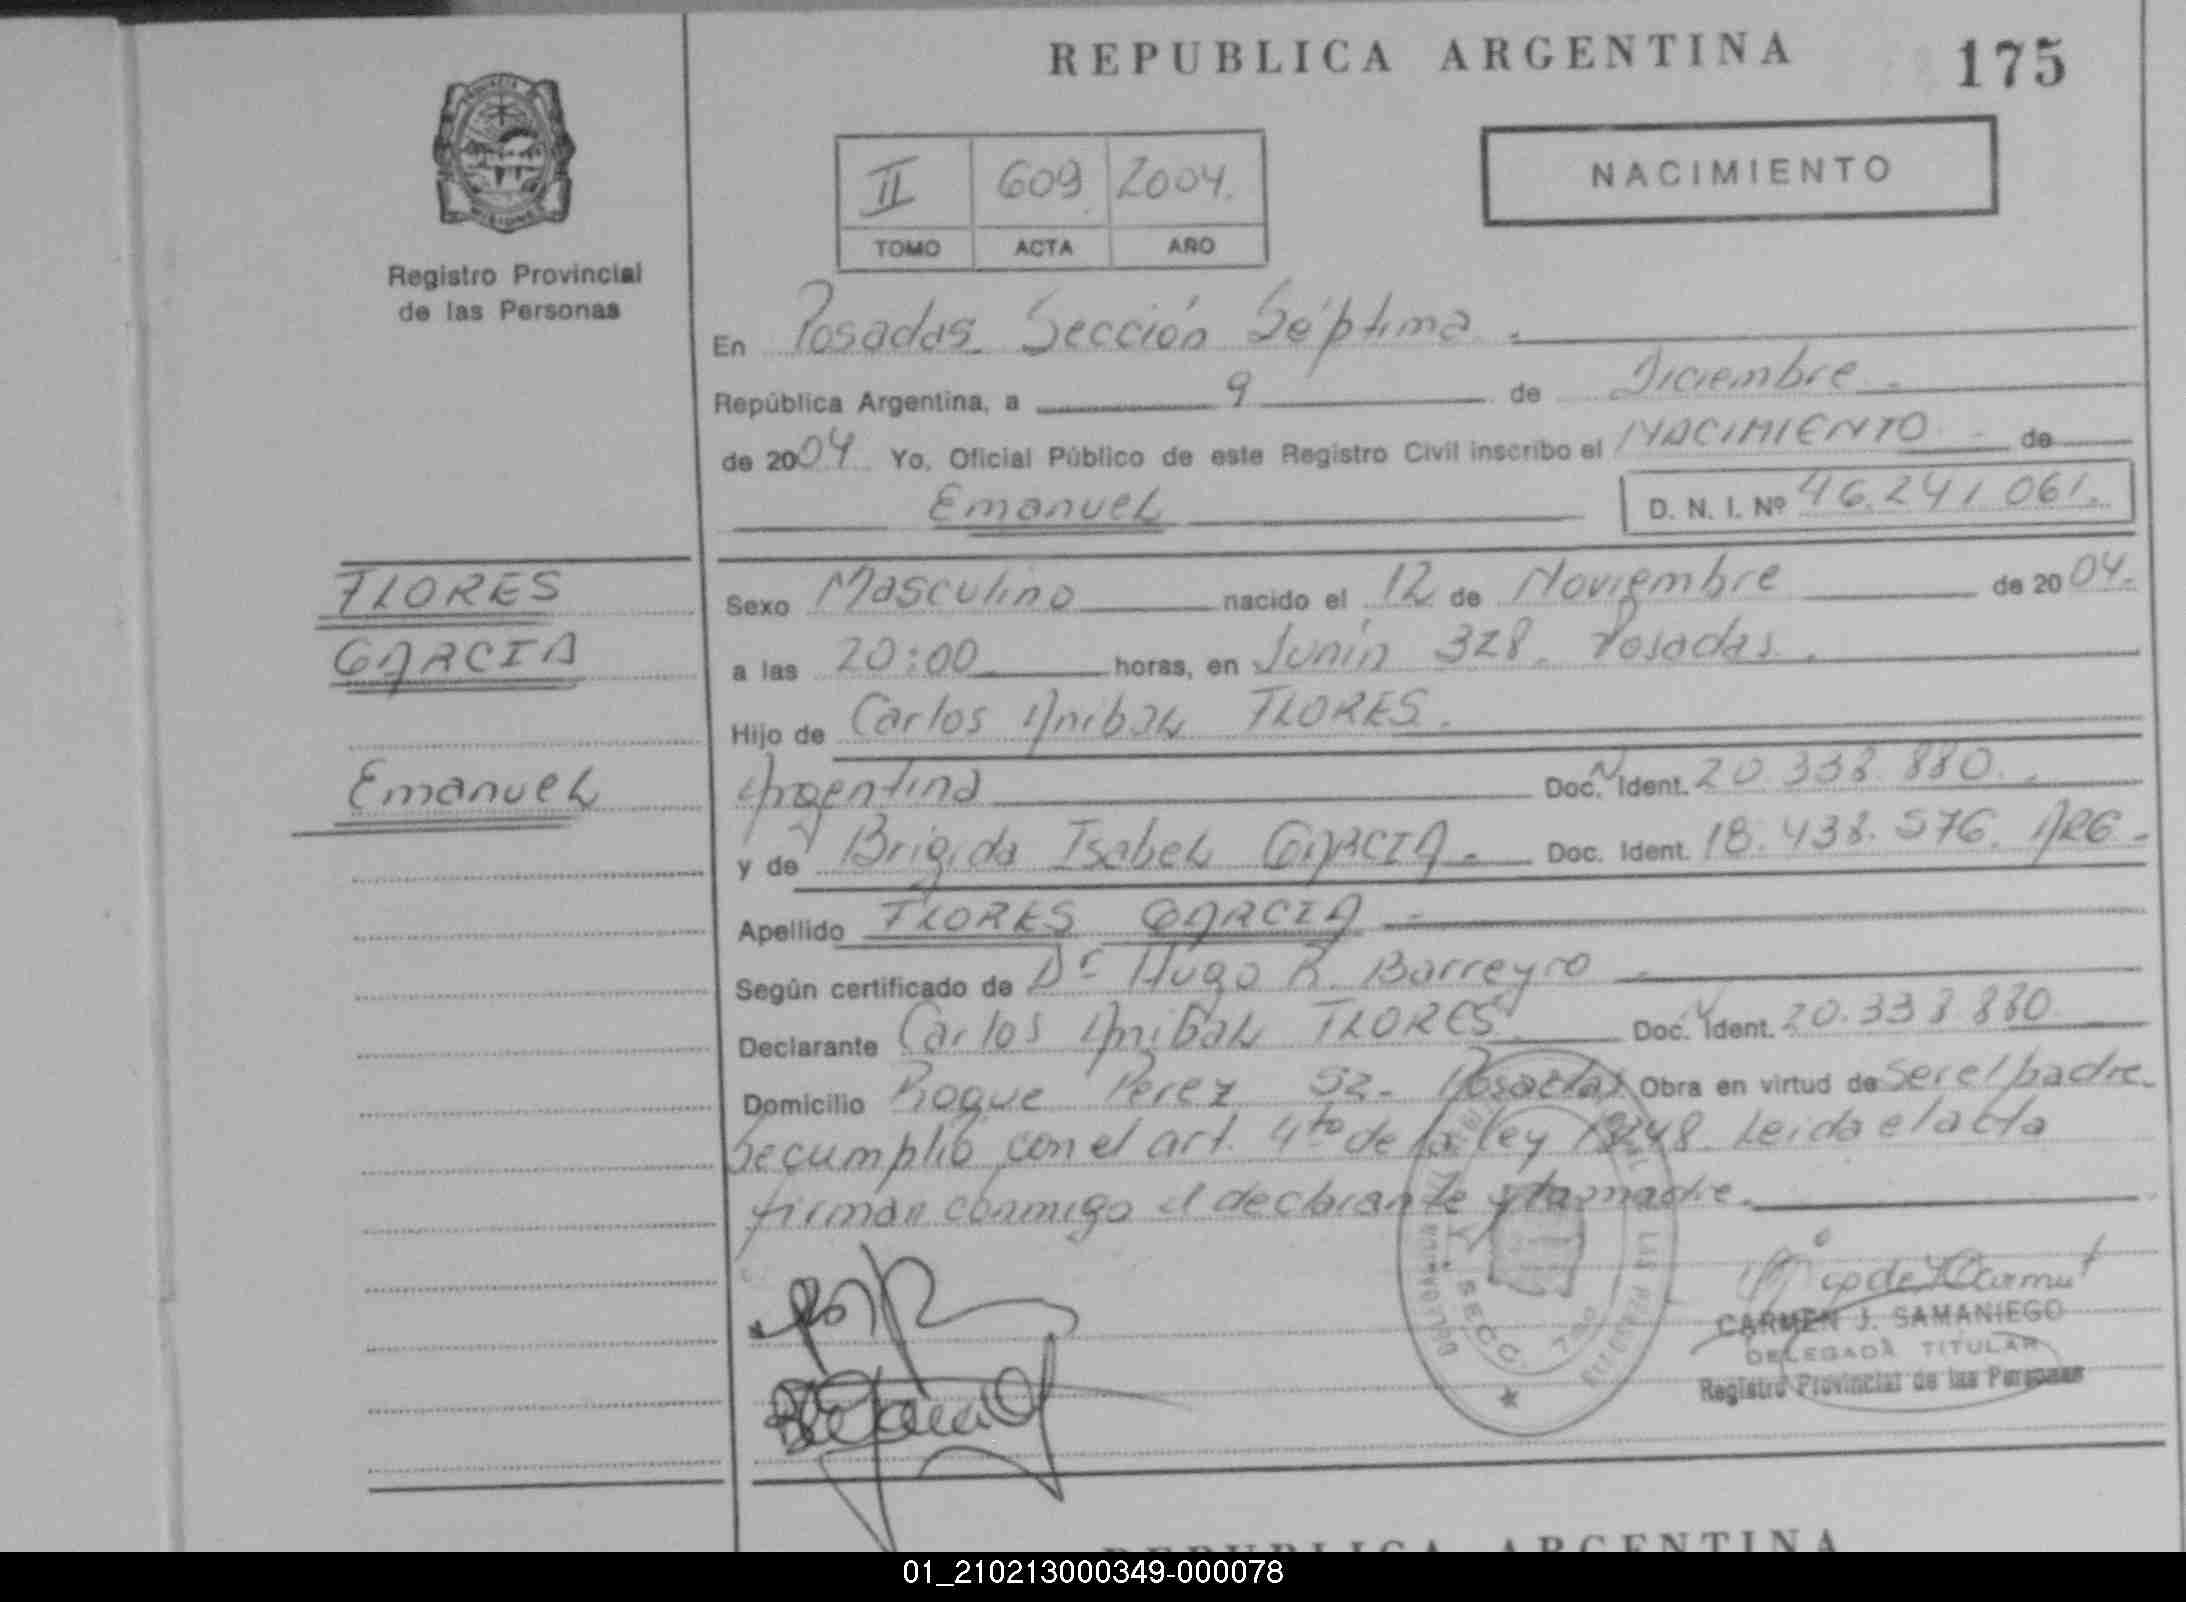 REPUBLICA ARGENTINA 175
II 609 2004.
TOMO ACTA AÑO
NACIMIENTO
Registro Provincial
de las Personas
En Posadas Sección Séptima.
República Argentina, a 9 de Diciembre
de 2004 Yo, Oficial Público de este Registro Civil inscribo el NACIMIENTO de
Emanuel D. N. I. Nº 46.241.061.
FLORES
GARCIA
Emanuel
Sexo Masculino nacido el 12 de Noviembre de 2004.
a las 20:00 horas, en Junín 328. Posadas.
Hijo de Carlos Anibal FLORES.
Argentina Doc. N Ident. 20.338.880.
y de Brigida Isabel GARCIA. Doc. Ident. 18.438.576. ARG.
Apellido FLORES GARCIA
Según certificado de Dr Hugo R. Barreyro
Declarante Carlos Anibal FLORES Doc. N Ident. 20.338.880
Domicilio Roque Perez 52. Posadas Obra en virtud de ser el padre.
Se cumplió con el art. 4to de la ley 18248. Leida el acta
firman conmigo el declarante y la madre.
SECC. 7
CARMEN J. SAMANIEGO
DELEGADA TITULAR
Registro Provincial de las Personas
REPUBLICA ARGENTINA
01_210213000349-000078